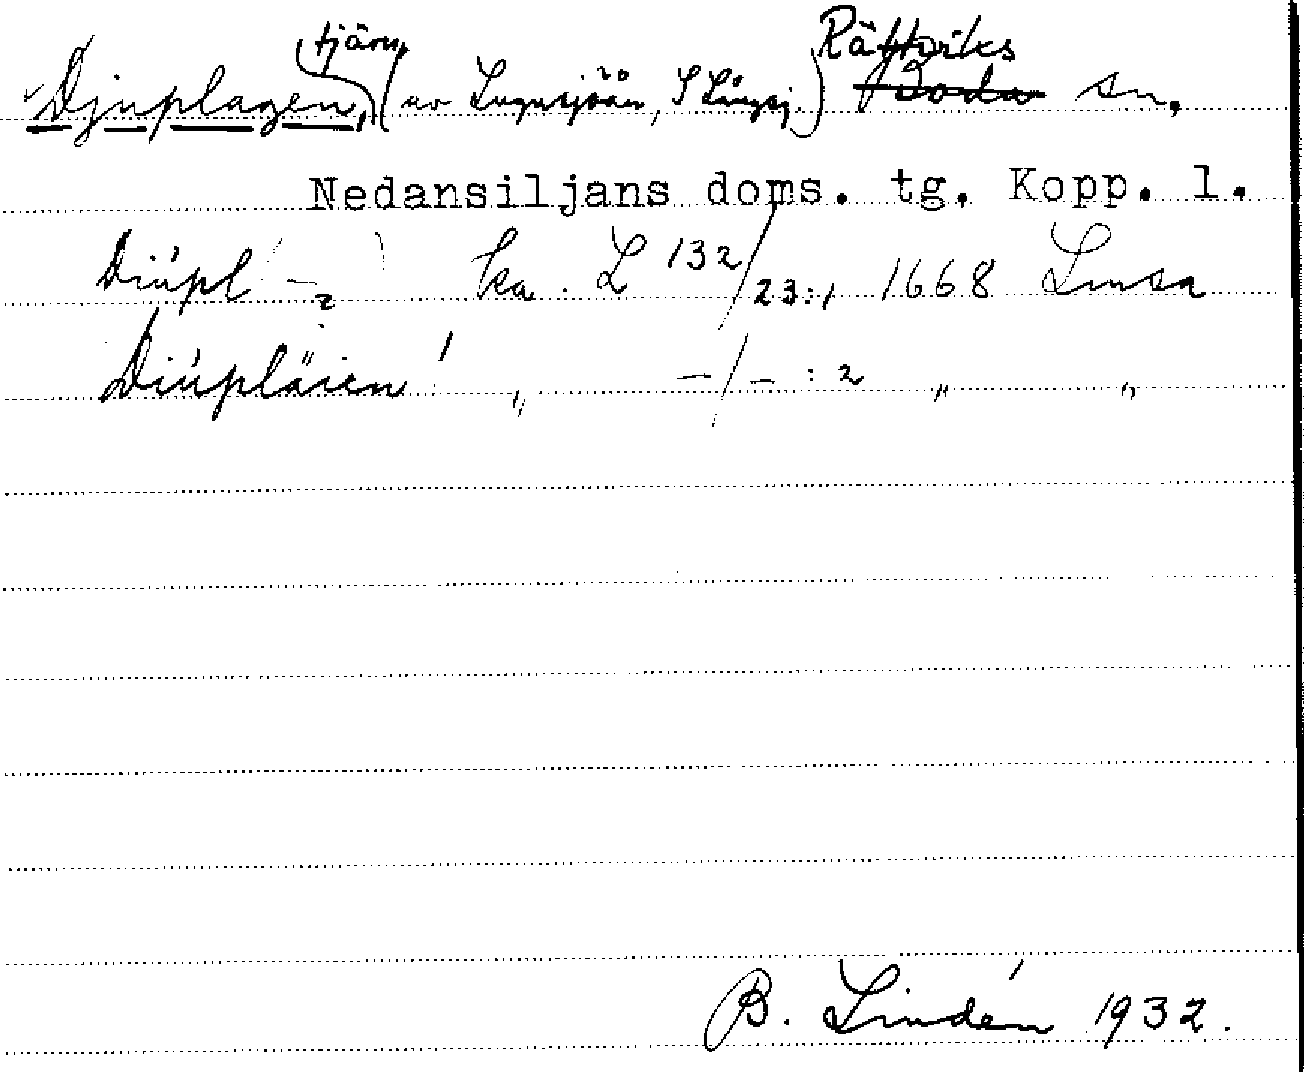 Djuplagen, tjärn, (av Lugnsjöån, S Långsj.) Rättviks sn,
Nedansiljans doms. tg. Kopp. l.
Diúpl - ka. L 132/23:1 1668 Linsa
Diúpläien! " -/- : 2 " "
B. Lindén 1932.